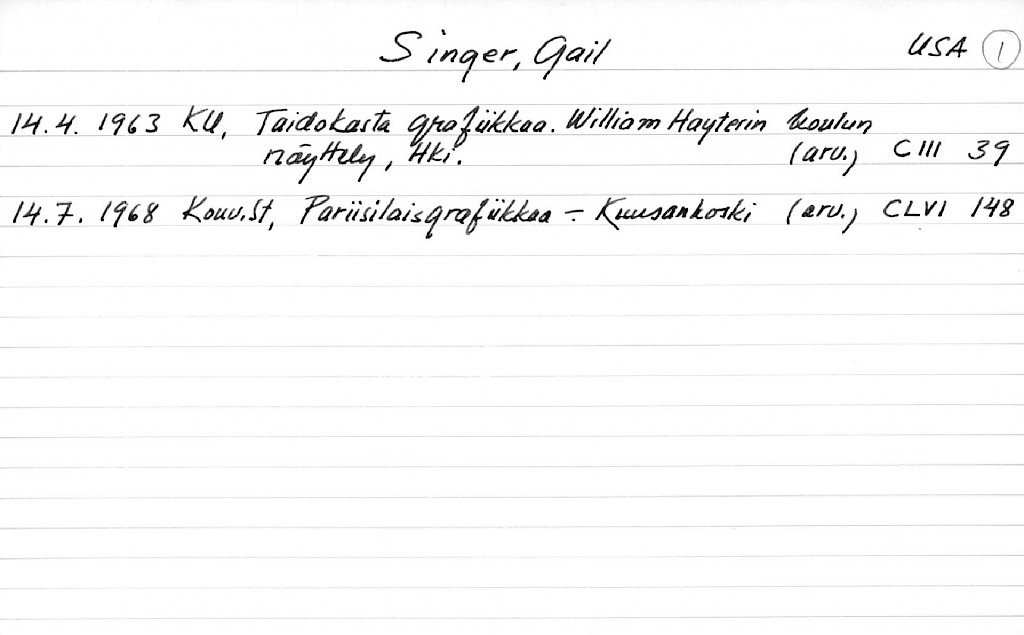 Singer, Gail USA 1
14.4. 1963 KU, Taidokasta grafiikkaa. William Hayterin koulun
näyttely, Hki. (arv.) CIII 39
14.7. 1968 Kouv.St, Pariisilaisgrafiikkaa - Kuusankoski (arv.) CLVI 148